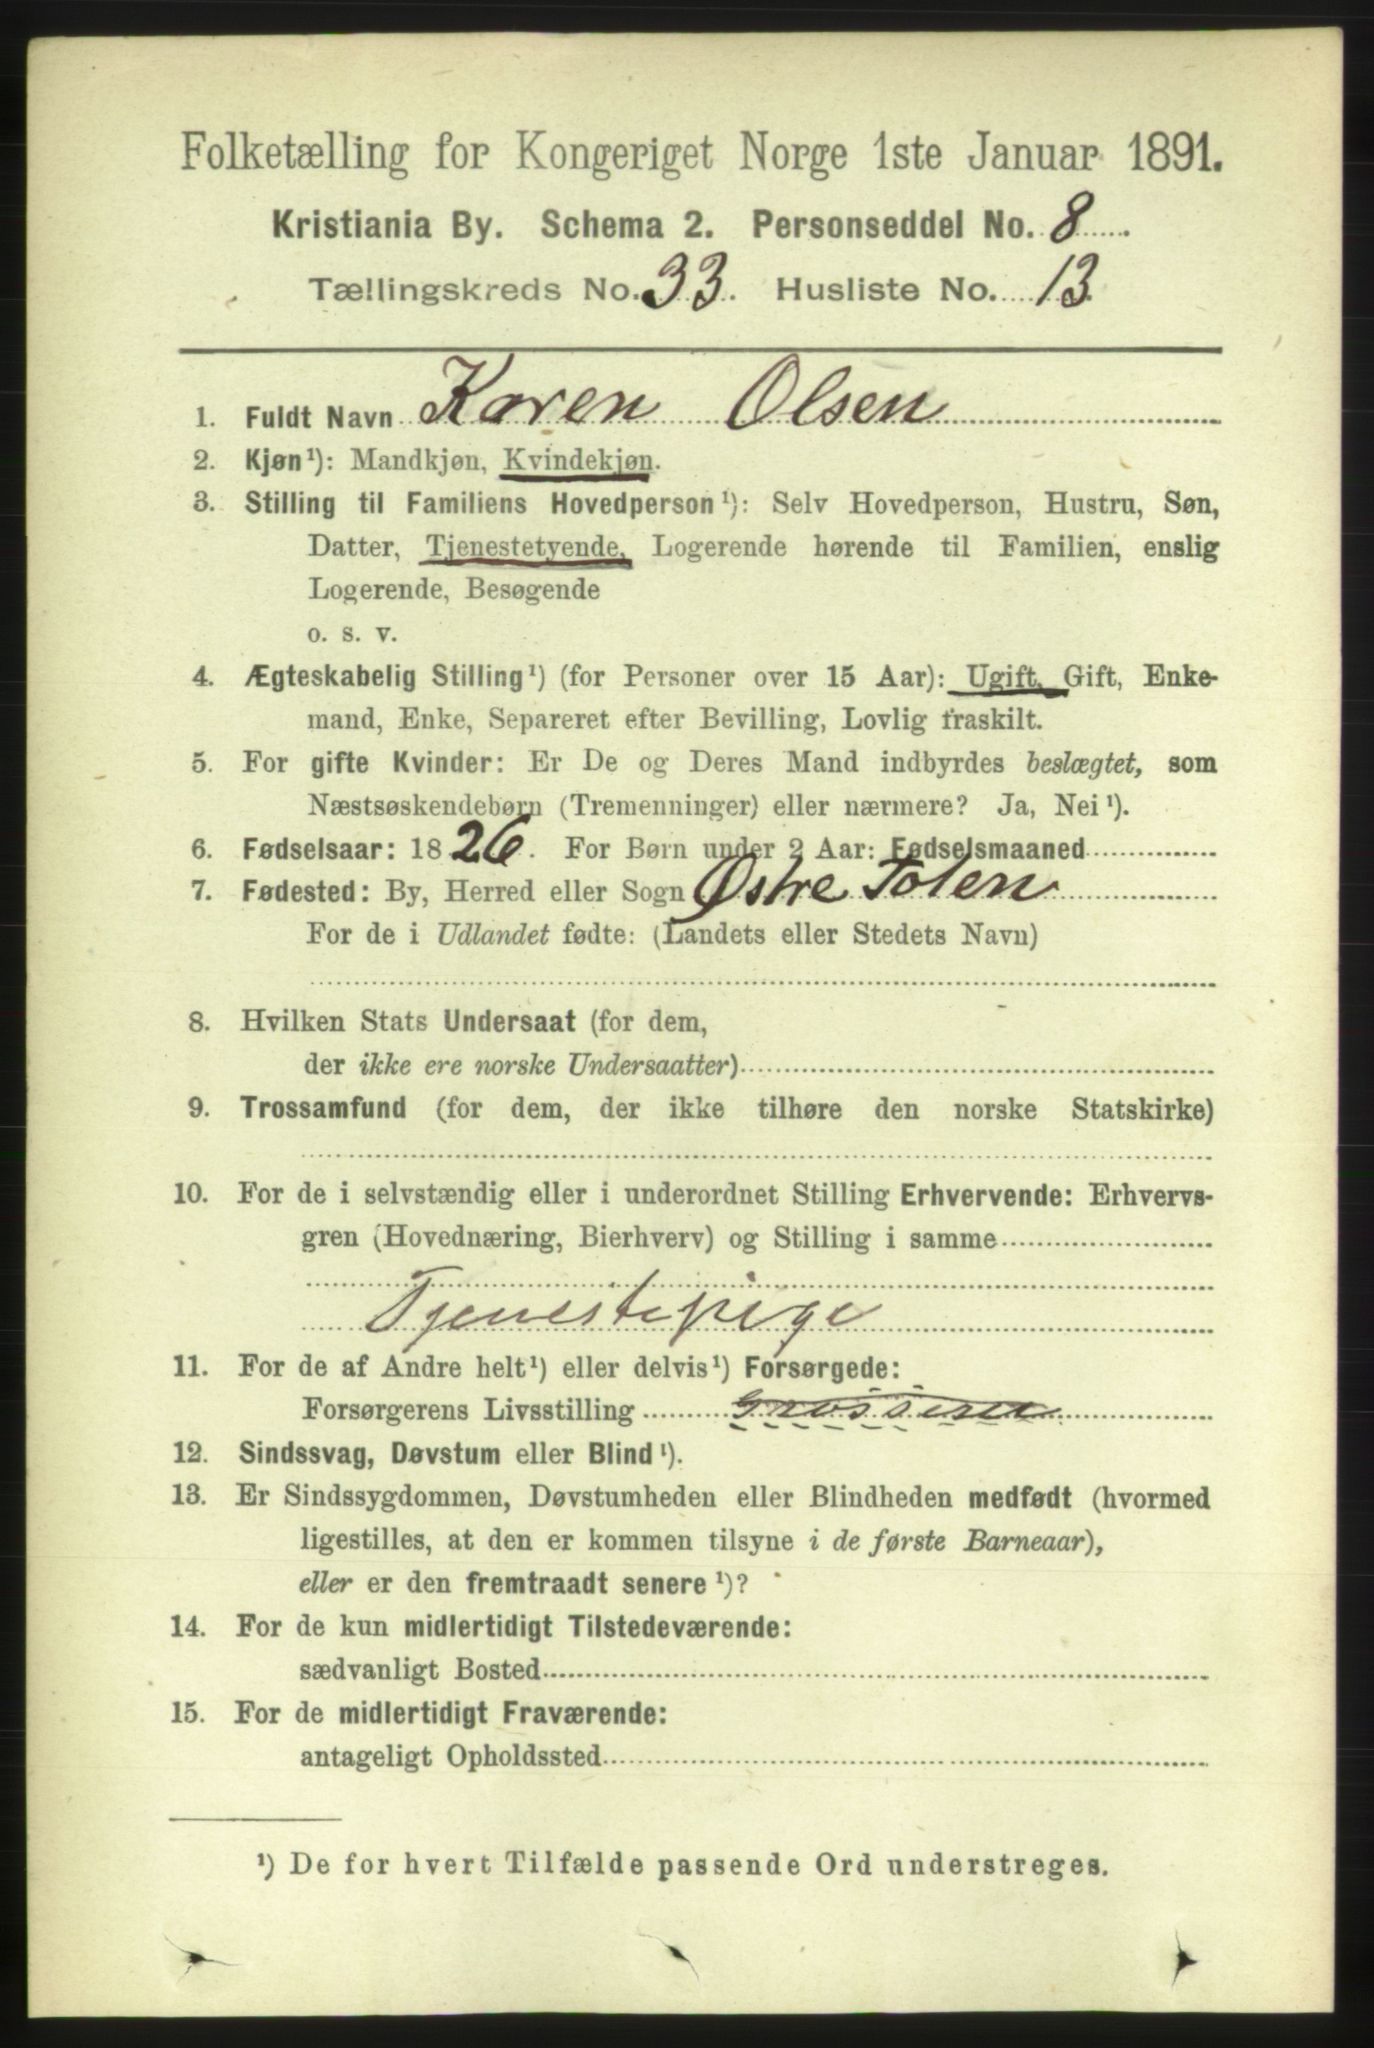 Folketælling for Kongeriget Norge 1ste Januar 1891.
Kristiania By. Schema 2. Personseddel No. 8
Tællingskreds No. 33. Husliste No. 13.
1. Fuldt Navn Karen Olsen
2. Kjøn¹): Mandkjøn, Kvindekjøn.
3. Stilling til Familiens Hovedperson¹): Selv Hovedperson, Hustru, Søn,
Datter, Tjenestetyende, Logerende hørende til Familien, enslig
Logerende, Besøgende
o. s. v.
4. Ægteskabelig Stilling¹) (for Personer over 15 Aar): Ugift, Gift, Enke-
mand, Enke, Separeret efter Bevilling, Lovlig fraskilt.
5. For gifte Kvinder: Er De og Deres Mand indbyrdes beslægtet, som
Næstsøskendebørn (Tremenninger) eller nærmere? Ja, Nei¹).
6. Fødselsaar: 1826. For Børn under 2 Aar: Fødselsmaaned
7. Fødested: By, Herred eller Sogn Østre Toten
For de i Udlandet fødte: (Landets eller Stedets Navn)
8. Hvilken Stats Undersaat (for dem,
der ikke ere norske Undersaatter)
9. Trossamfund (for dem, der ikke tilhøre den norske Statskirke)
10. For de i selvstændig eller i underordnet Stilling Erhvervende: Erhvervs-
gren (Hovednæring, Bierhverv) og Stilling i samme
Tjenestepige
11. For de af Andre helt¹) eller delvis¹) Forsørgede:
Forsørgerens Livsstilling Grosserer
12. Sindssvag, Døvstum eller Blind¹).
13. Er Sindssygdommen, Døvstumheden eller Blindheden medfødt (hvormed
ligestilles, at den er kommen tilsyne i de første Barneaar),
eller er den fremtraadt senere¹)?
14. For de kun midlertidigt Tilstedeværende:
sædvanligt Bosted
15. For de midlertidigt Fraværende:
antageligt Opholdssted
¹) De for hvert Tilfælde passende Ord understreges.